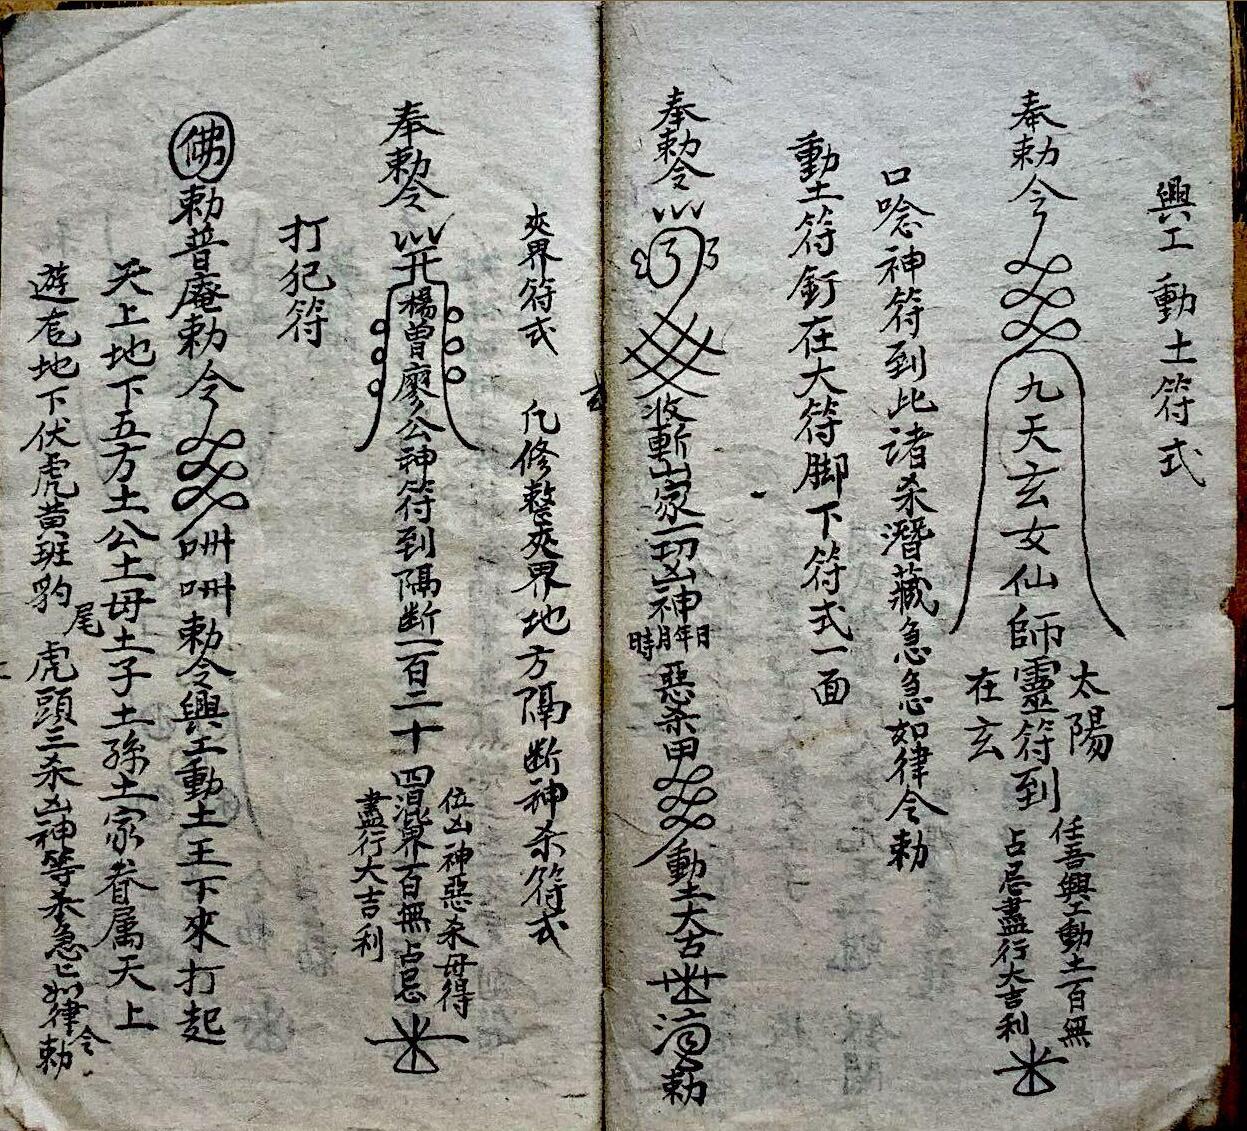 興工動土符式
奉勅令九天玄女仙師靈符到
太陽
在玄
任吾興工動土百無
占忌盡行大吉利
口唸神符到比諸杀潛藏急急如律令勅
動土符釘在大符脚下符式一面
奉勅令收斬山家一切凶神
時月年日
惡杀甲動土大吉
勅
夾界符式 凡修整夾界地方隔断神杀符式
奉勅令楊曾廖公神符到隔断一百二十四
位凶神惡杀毋得
混界百無占忌
盡行大吉利
打犯符
佛勅普庵勅令勅令興工動土王下來打起
天上地下五方土公土母土子土孫土家眷属天上
遊地下伏虎黄班豹尾虎頭三杀凶神等杀急匕如律令勅